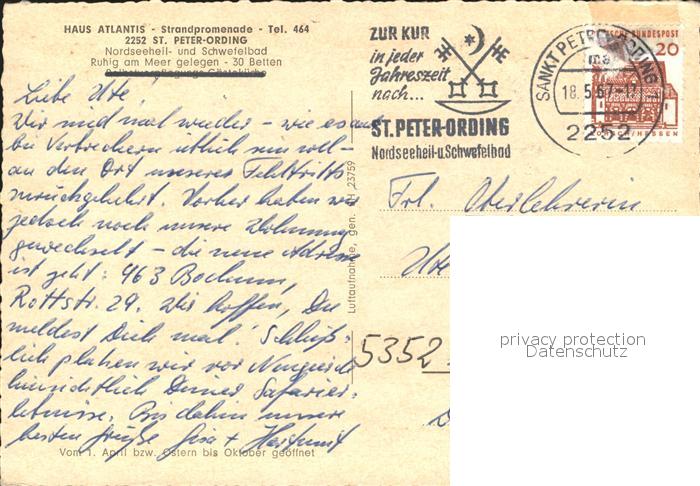 HAUS ATLANTIS - Strandpromenade - Tel. 464
2252 ST. PETER-ORDING
Nordseeheil- und Schwefelbad
Ruhig am Meer gelegen - 30 Betten
Liebe Ute,
Wir sind mal wieder – wie es auch
bei Verbrechern üblich sein soll –
an den Ort unserer Fehltritte
zurückgekehrt. Vorher haben wir
jedoch noch unsere Wohnung
gewechselt – die neue Adresse
ist jetzt: 463 Bochum,
Rottstr. 29. Wir hoffen, Du
meldest Dich mal! Schließ=
lich platzen wir vor Neugierde
hinsichtlich Deiner Safarier=
lebnisse. Bis dahin unsere
besten Grüße Gisa + Hartmut
Vom 1. April bzw. Ostern bis Oktober geöffnet
Luftaufnahme, gen. SH 23759
ZUR KUR
in jeder
Jahreszeit
nach...
ST. PETER-ORDING
Nordseeheil-u. Schwefelbad
SANKT PETER-ORDING
18.5.67-17
2252
DEUTSCHE BUNDESPOST
20
LORSCH/HESSEN
Frl. Oberlehrerin
Ute
5352
privacy protection
Datenschutz